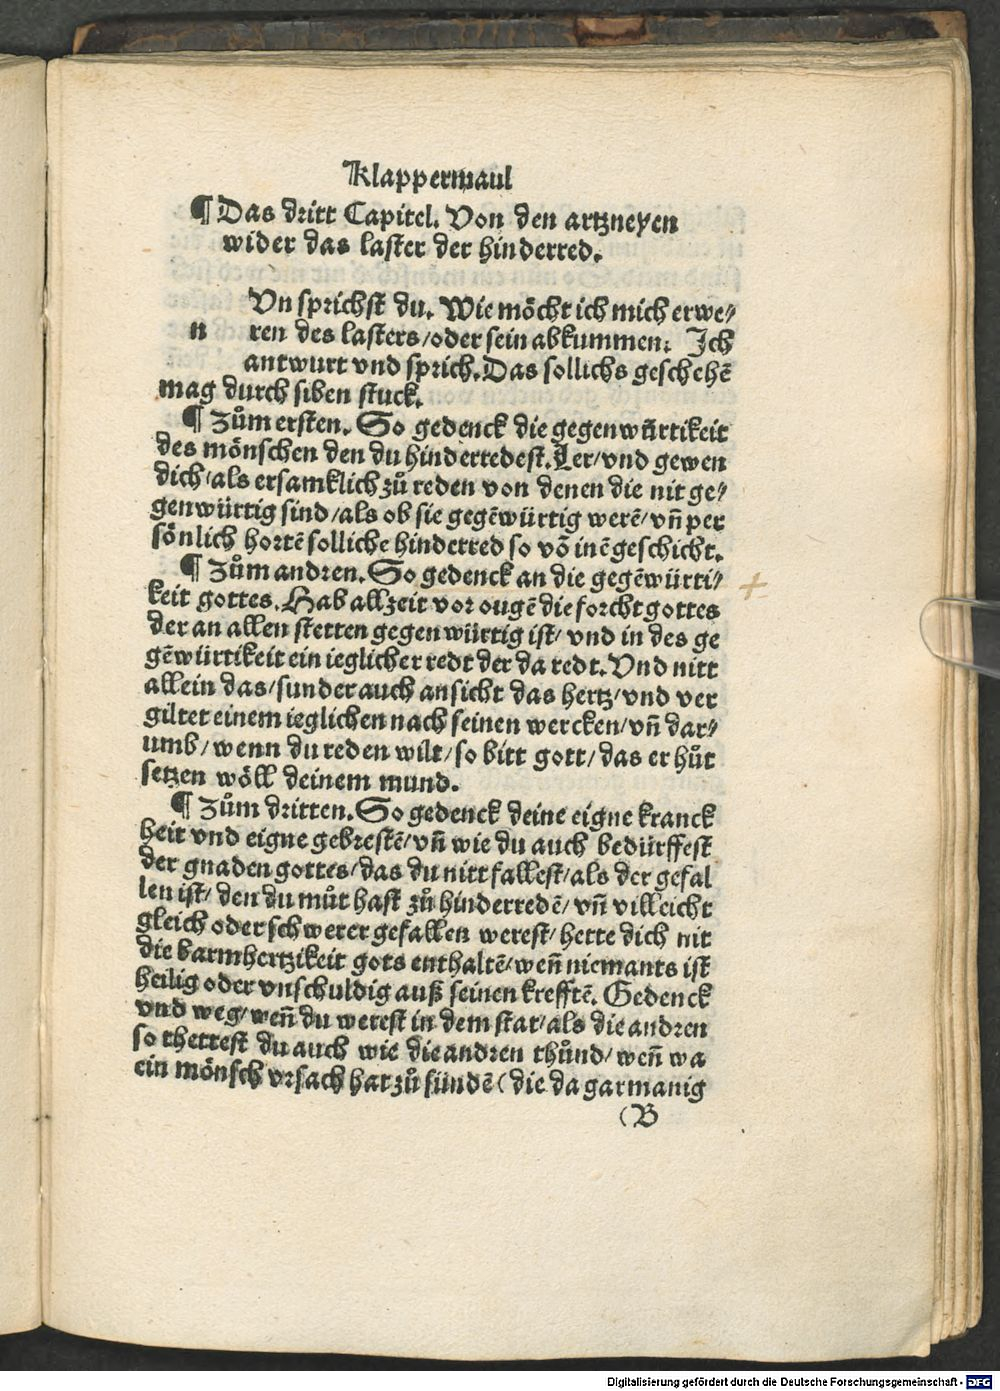 Klappermaul
¶ Das dritt Capitel. Von den artzneyen
wider das laster der hinderred.
Vn sprichst du. Wie möcht ich mich erwe⸗
n ren des lasters/oder sein abkummen. Ich
antwurt vnd sprich. Das sollichs geschehē
mag durch siben stuck.
¶ Zům ersten. So gedenck die gegenwürtikeit
des mönschen den du hinderredest. Ler/vnd gewen
dich/als ersamklich zů reden von denen die nit ge⸗
genwürtig sind/als ob sie gegēwürtig werē/vn̄ per
sönlich hortē solliche hinderred so vō inē geschicht.
¶ Zům andren. So gedenck an die gegēwürti⸗
keit gottes. Hab allzeit vor ougē die forcht gottes
der an allen stetten gegenwürtig ist/vnd in des ge
gēwürtikeit ein ieglicher redt der da redt. Vnd nitt
allein das/sunder auch ansicht das hertz/vnd ver
giltet einem ieglichen nach seinen wercken/vn̄ dar⸗
umb/wenn du reden wilt/so bitt gott/das er hůt
setzen wöll deinem mund.
¶ Zům dritten. So gedenck deine eigne kranck
heit vnd eigne gebrestē/vn̄ wie du auch bedürffest
der gnaden gottes/das du nitt fallest/als der gefal
len ist/den du můt hast zů hinderredē/vn̄ villeicht
gleich oder schwerer gefallen werest/hette dich nit
die barmhertzikeit gots enthaltē/wen̄ niemants ist
heilig oder vnschuldig auß seinen krefftē. Gedenck
vnd weg/wen̄ du werest in dem stat/als die andren
so thettest du auch wie die andren thůnd/wen̄ wa
ein mönsch vrsach hat zů sündē (die da gar manig
(B
Digitalisierung gefördert durch die Deutsche Forschungsgemeinschaft - DFG